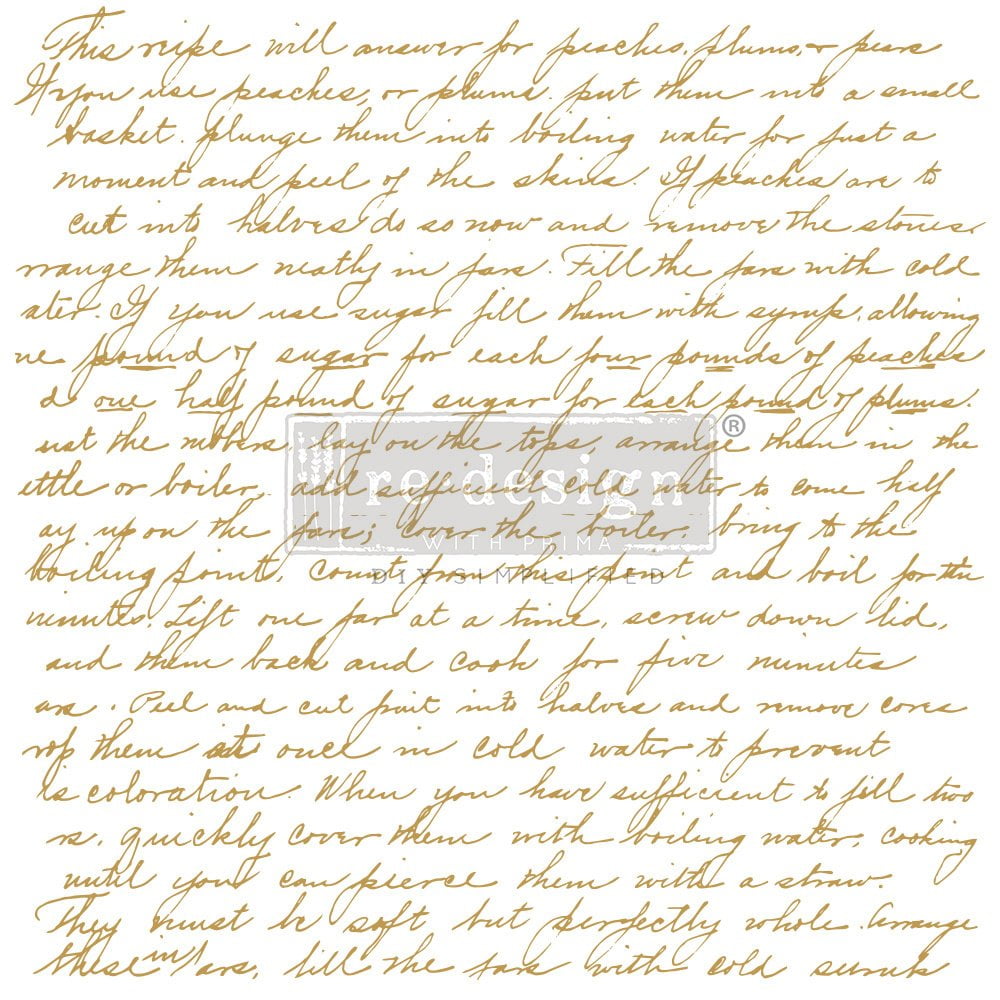 This reipe will answer for peaches, plums, & pears
If you use peaches, or plums. put them into a small
basket. plunge them into boiling water for just a
moment and peel of the skins. If peaches are to
cut into halves do so now and remove the stones.
rrange them neatly in jars. Fill the jars with cold
ater. If you use sugar fill them with syrup, allowing
ne pound of sugar for each four pounds of peaches
d one half pound of sugar for each pound of plums.
ust the rubbers, lay on the tops, arrange them in the
ettle or boiler, add sufficient cold water to come half
ay up on the jars; cover the boiler. bring to the
boiling point, count from this point and boil for ten
minutes. Lift one jar at a time, screw down lid,
and them back and cook for five minutes
ars. Peel and cut fruit into halves and remove cores
rop them at once in cold water to prevent
iscoloration. When you have sufficient to fill two
rs, quickly cover them with boiling water, cooking
until you can pierce them with a straw.
They must be soft, but perfectly whole. Arrange
these in jars, fill the jars with cold
re·design®
WITH PRIMA
DIY SIMPLIFIED